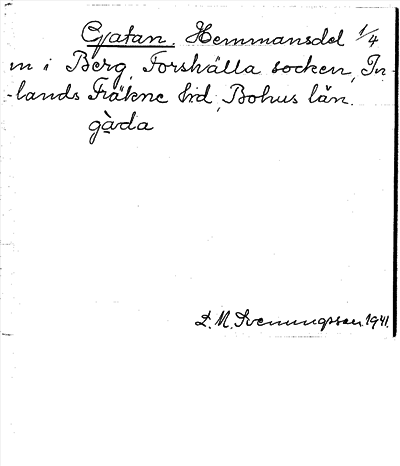 Gatan. Hemmansdel 1/4
m i Berg, Forshälla socken, In-
-lands Fräkne hd, Bohus län.
gàda
S. M. Svenungsson 1941.